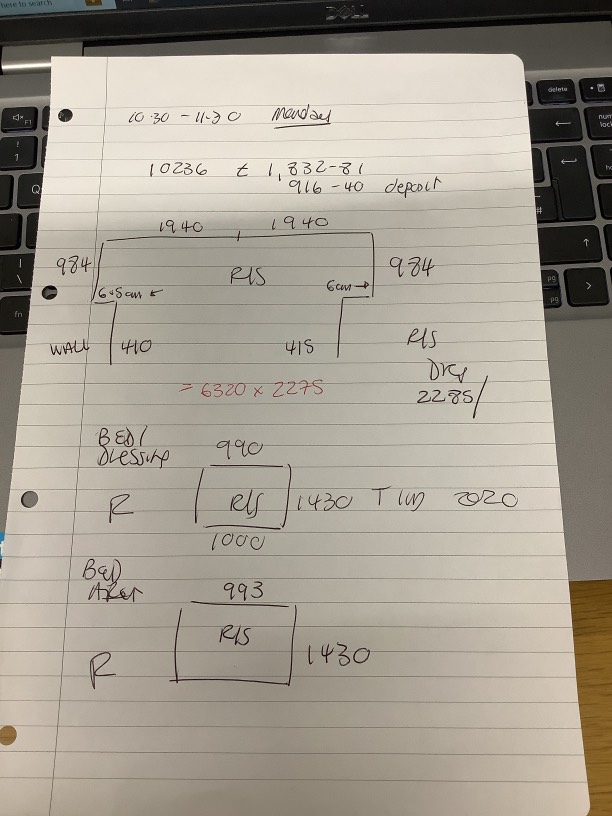 here to search
DELL
delete
10.30 - 11.30 Monday
10236 £ 1,832-81
916-40 deposit
1940 1940
984 R/S 984
6.5cm ← 6cm →
WALL 410 415 R/S
= 6320 x 2275
2285/
BED/
Dressing 990
R R/S 1430 2020
1000
BED
993
R/S
R 1430